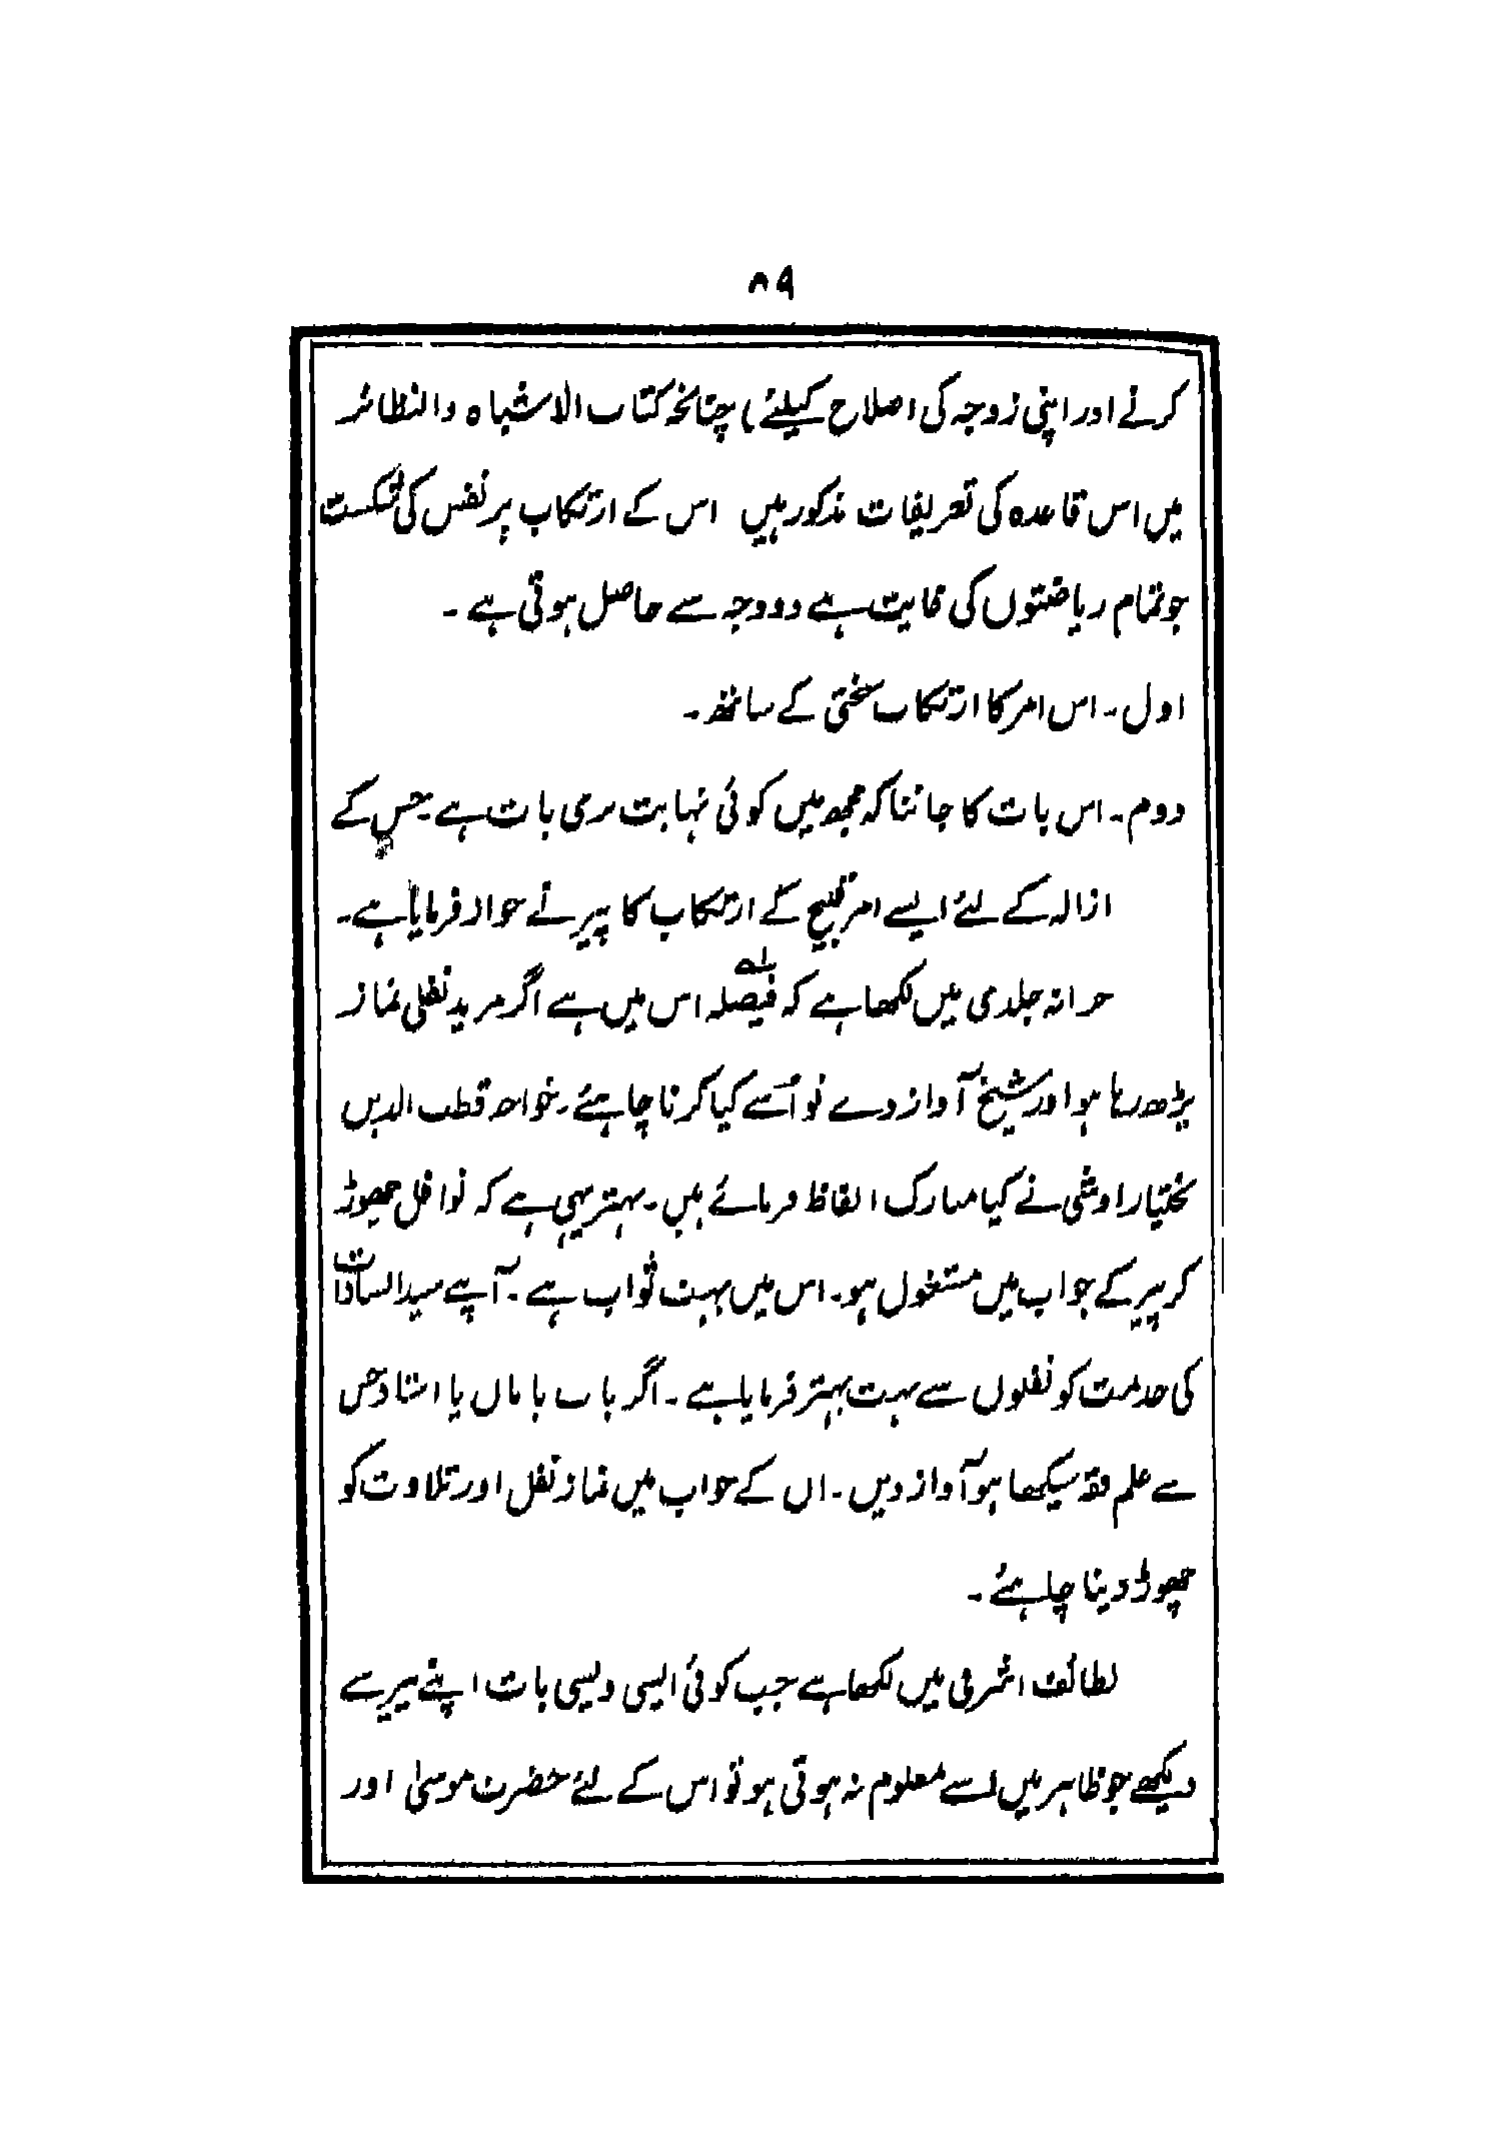 ۸۹
کرنے اور اپنی زوجہ کی اصلاح کیلئے) چنانچہ کتاب الاشباہ والنظائر
میں اس قاعدہ کی تعریفات مذکور ہیں اس کے ارتکاب پر نفس کی شکست
جو تمام ریاضتوں کی غایت ہے دو وجہ سے حاصل ہوتی ہے ۔
اول ۔ اس امر کا ارتکاب سختی کے ساتھ ۔
دوم ۔ اس بات کا جاننا کہ مجھ میں کوئی نہایت بری بات ہے جس کے
ازالہ کے لئے ایسے امر قبیح کے ارتکاب کا پیر نے فرمایا ہے ۔
خزانہ جلدی میں لکھا ہے کہ فیصلہ اس میں ہے اگر مرید نفلی نماز
پڑھ رہا ہو اور شیخ آواز دے تو اُسے کیا کرنا چاہئے ۔ خواجہ قطب الدین
بختیار اوشی نے کیا مبارک الفاظ فرمائے ہیں ۔ بہتر یہی ہے کہ نوافل چھوڑ
کر پیر کے جواب میں مشغول ہو ۔ اس میں بہت ثواب ہے ۔ آپ نے سید السادات
کی خدمت کو نفلوں سے بہت بہتر فرمایا ہے ۔ اگر باپ یا ماں یا استاد جس
سے علم فقہ سیکھا ہو آواز دیں ۔ ان کے جواب میں نماز نفل اور تلاوت کو
چھوڑ دینا چاہئے ۔
لطائف اشرفی میں لکھا ہے جب کوئی ایسی ویسی بات اپنے پیر سے
دیکھے جو ظاہر میں اسے معلوم نہ ہوتی ہو تو اس کے لئے حضرت موسیٰ اور